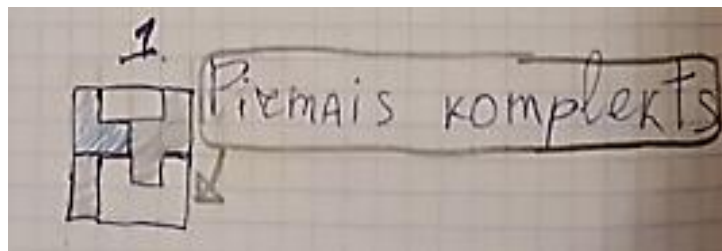 1.
Pirmais komplekts